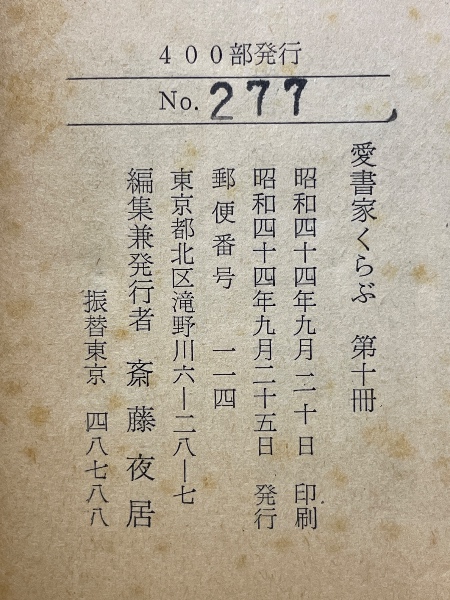 400部発行
No. 277
愛書家くらぶ 第十冊
昭和四十四年九月二十日 印刷
昭和四十四年九月二十五日 発行
郵便番号 一一四
東京都北区滝野川六ー二八ー七
編集兼発行者 斎藤夜居
振替東京 四八七八八